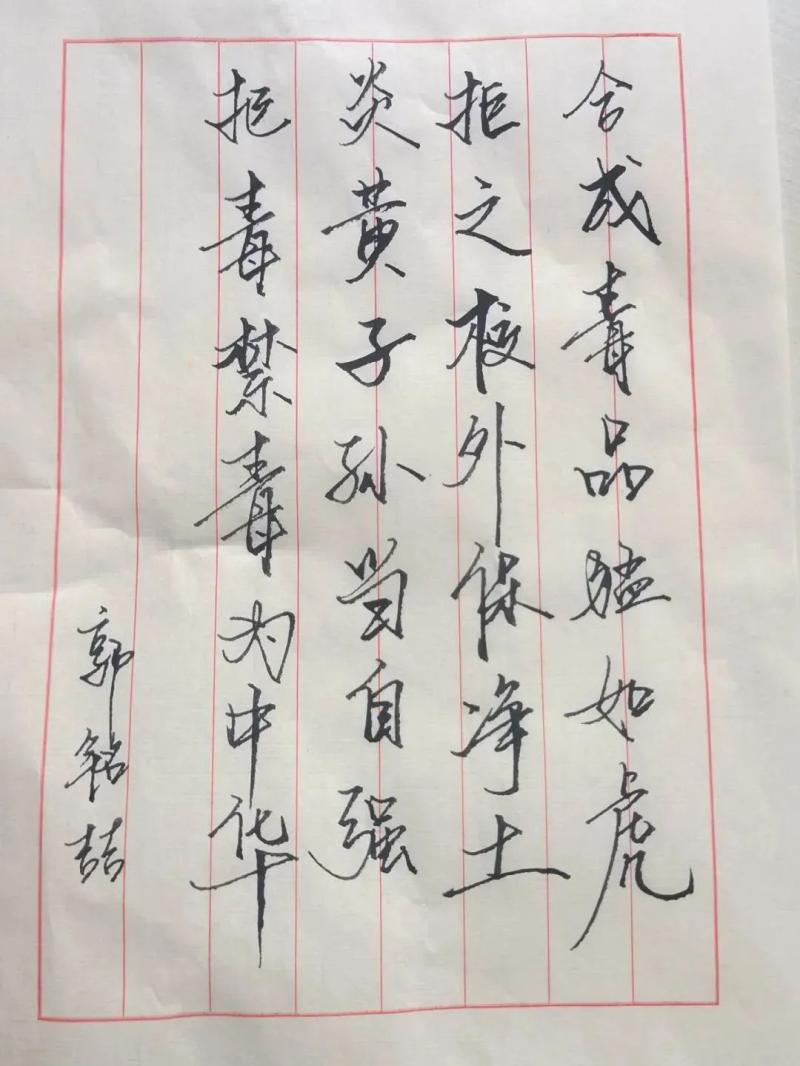 合成毒品猛如虎
拒之校外保净土
炎黄子孙当自强
拒毒禁毒为中华
郭铭喆